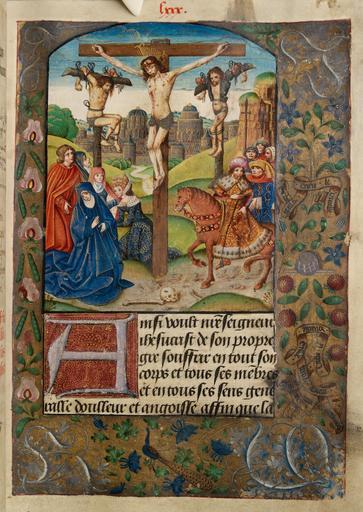 lxx.
Ainsi voult nr̄e seigneur
ihesucrist de son propre
gre souffrir en tout son
corps et tous ses mēbres
et en tous ses sens gene
ralle doulleur et angoisse affin que la